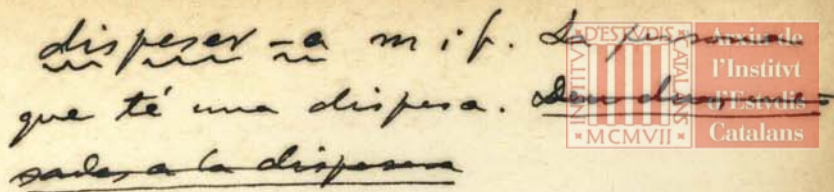 disperser -a m i f. La persona
que té una dispesa. Deu dues me-
sades a la dispesera
INSTITVT D'ESTVDIS CATALANS
MCMVII
Arxiu de
l'Institvt
d'Estvdis
Catalans